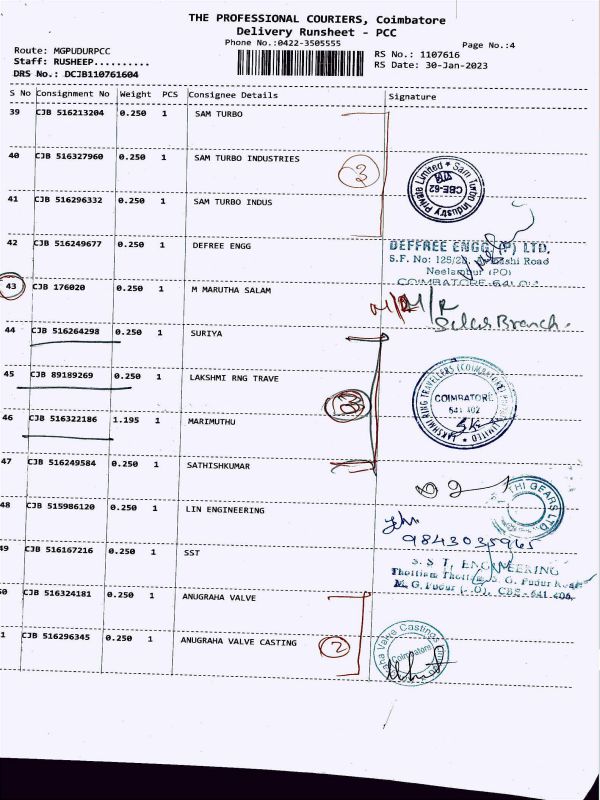 THE PROFESSIONAL COURIERS, Coimbatore
Delivery Runsheet - PCC
Phone No.:0422-3505555
Page No.:4
Route: MGPUDURPCC
Staff: RUSHEEP..........
DRS No.: DCJB110761604
RS No.: 1107616
RS Date: 30-Jan-2023
S No Consignment No Weight PCS Consignee Details Signature
39 CJB 516213204 0.250 1 SAM TURBO
40 CJB 516327960 0.250 1 SAM TURBO INDUSTRIES
3
Sam Turbo Industry Private Limited
CBE-62
41 CJB 516296332 0.250 1 SAM TURBO INDUS
42 CJB 516249677 0.250 1 DEFREE ENGG
DEFFREE ENGG. (P) LTD.
S.F. No: 125/2 Road
Neelambur (PO)
COIMBATORE
43 CJB 176020 0.250 1 M MARUTHA SALAM
M/R
Sales Branch.
44 CJB 516264298 0.250 1 SURIYA
45 CJB 89189269 0.250 1 LAKSHMI RNG TRAVE
3
LAKSHMI RING TRAVELLERS (COIMBATORE) LIMITED
COIMBATORE
641 402
46 CJB 516322186 1.195 1 MARIMUTHU
47 CJB 516249584 0.250 1 SATHISHKUMAR
THI GEARS LTD
48 CJB 515986120 0.250 1 LIN ENGINEERING
9843035965
49 CJB 516167216 0.250 1 SST
S.S.T. ENGINEERING
Thottiam S. G. Pudur Road
M. G. Pudur (P.O), CBE - 641 406.
50 CJB 516324181 0.250 1 ANUGRAHA VALVE
1 CJB 516296345 0.250 1 ANUGRAHA VALVE CASTING
2
aha Valve Castings
Coimbatore